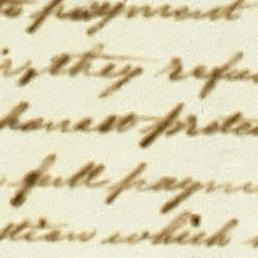 payment
they refu
honest prote
full payme
tion which